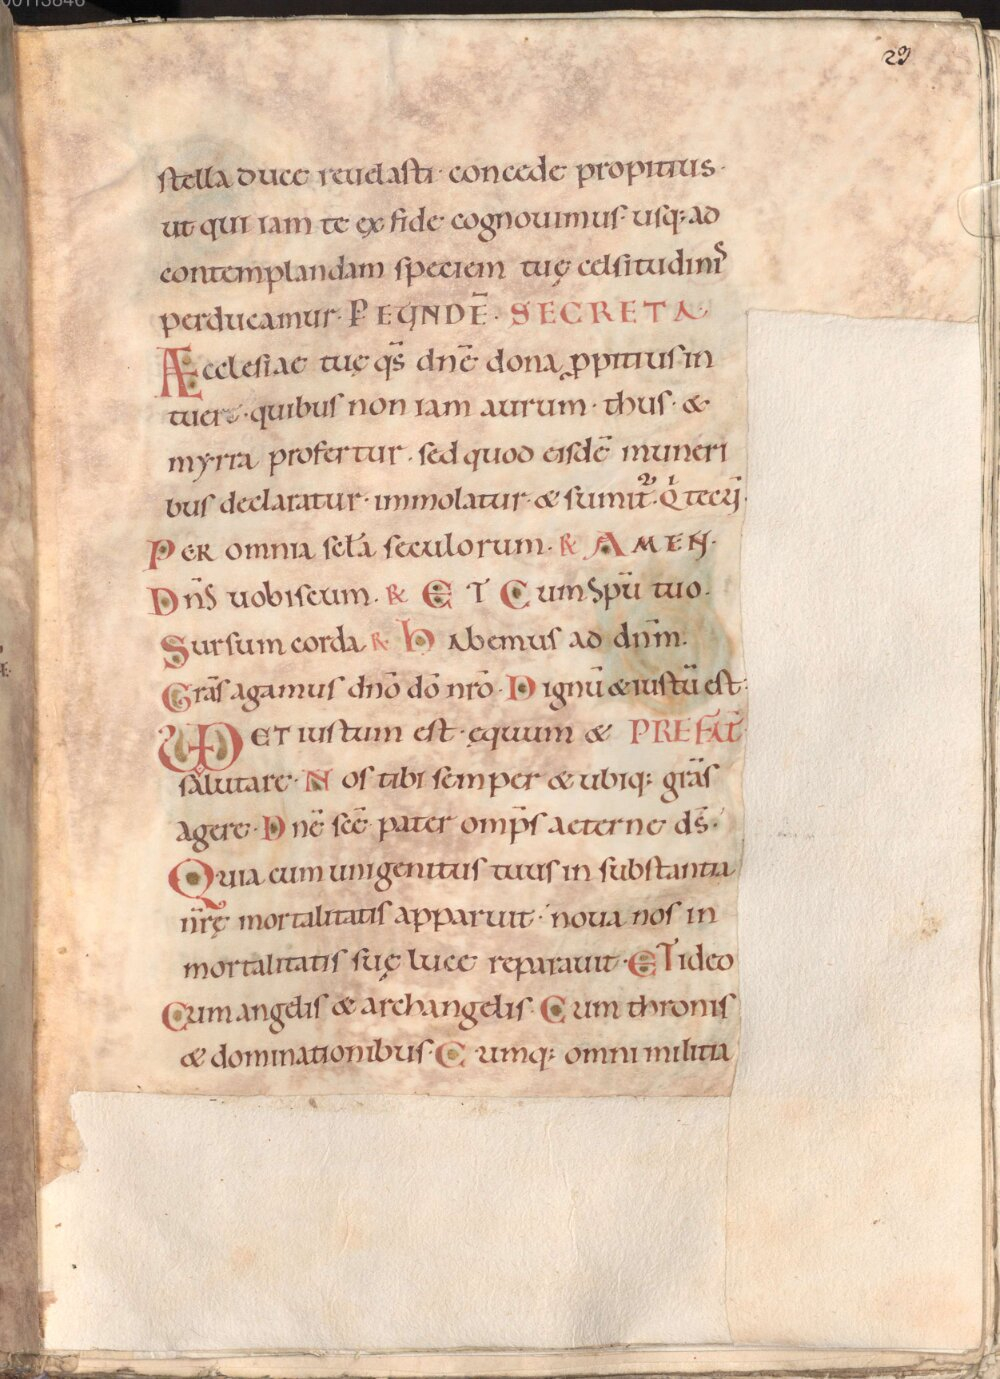 29
stella duce reuelasti· concede propitius·
ut qui iam te ex fide cognouimus· usq; ad
contemplandam speciem tuę celsitudinis
perducamur· P EŪNDĒ· SECRETA·
Æcclesiae tuę qs̄ dnē dona ꝓpitius in
tuere· quibus non iam aurum· thus· &
myrra profertur· sed quod eisdē muneri
bus declaratur· immolatur· & sumit᷑·
PER omnia scl̄a seculorum· ℟ AMEN·
Dn̄s uobiscum· ℟ ET Cum sp̄u tuo·
Sursum corda ℟ Habemus ad dn̄m·
Grās agamus dnō dō nrō· Dignū & iustū est·
VD ET iustum est· ęquum & PREFAT̄
salutare· Nos tibi semper & ubiq; grās
agere· Dnē scē pater omp̄s aeterne ds̄·
Quia cum unigenitus tuus in substantia
nr̄ę mortalitatis apparuit· noua nos in
mortalitatis suę luce reparauit· ET ideo
Cum angelis & archangelis· Cum thronis
& dominationibus· Cumq; omni militia